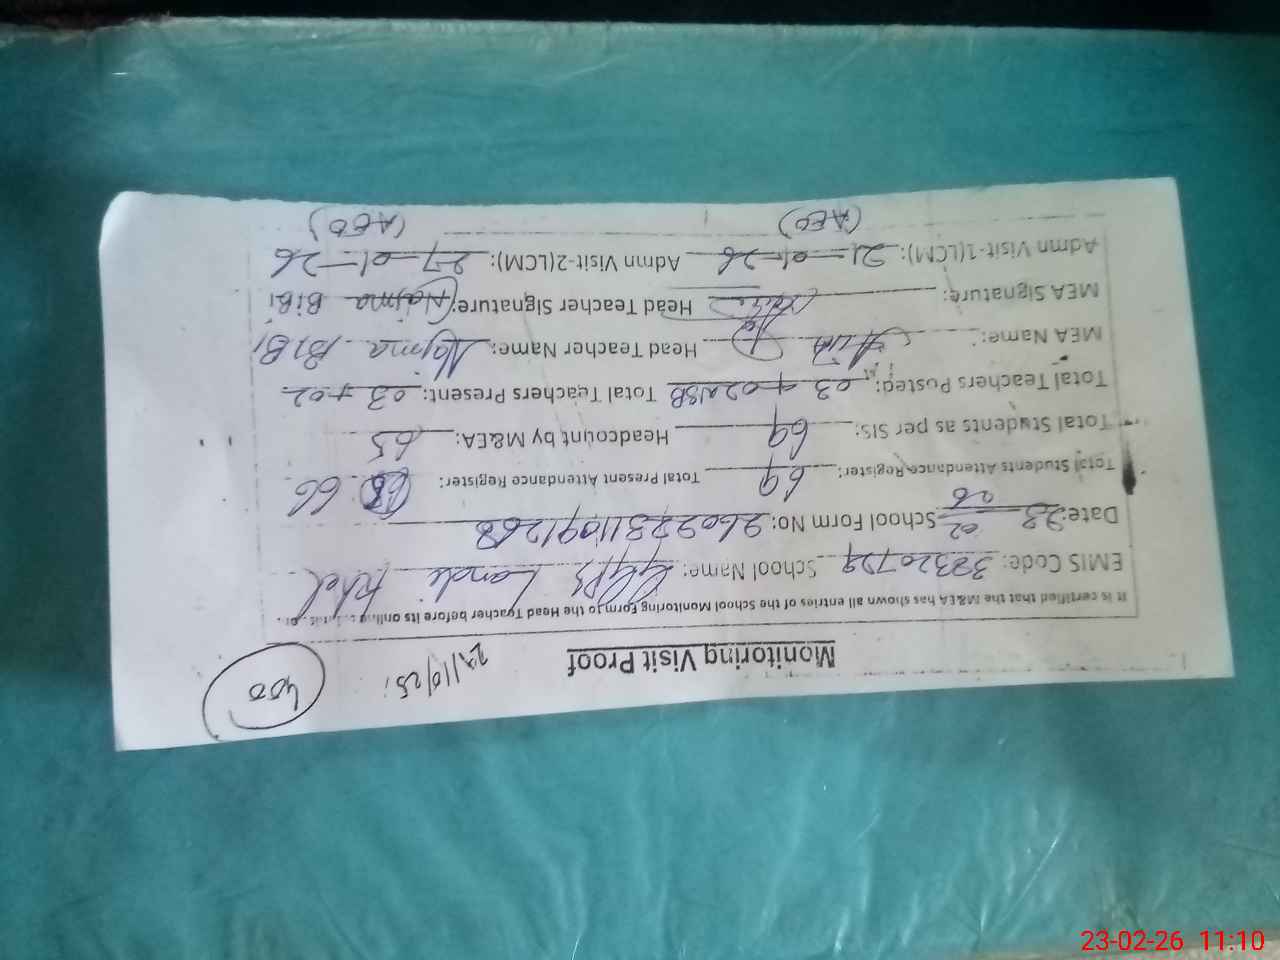 400
Monitoring Visit Proof
It is certified that the M&EA has shown all entries of the School Monitoring Form to the Head Teacher before its
EMIS Code: 38320729 School Name: GGPS Landi Khel
Date: 23 02 26 School Form No:
Total Students Attendance Register: 69 Total Present Attendance Register: 66
Total Students as per SIS: 69 Headcount by M&EA: 65
Total Teachers Posted: 03 + 02 Total Teachers Present: 03 + 02
MEA Name: Head Teacher Name: Najma BiBi
MEA Signature: Head Teacher Signature: Najma BiBi
Admn Visit-1(LCM): 21-01-26 Admn Visit-2(LCM): 27-01-26
(AEO) (AEO)
23-02-26 11:10